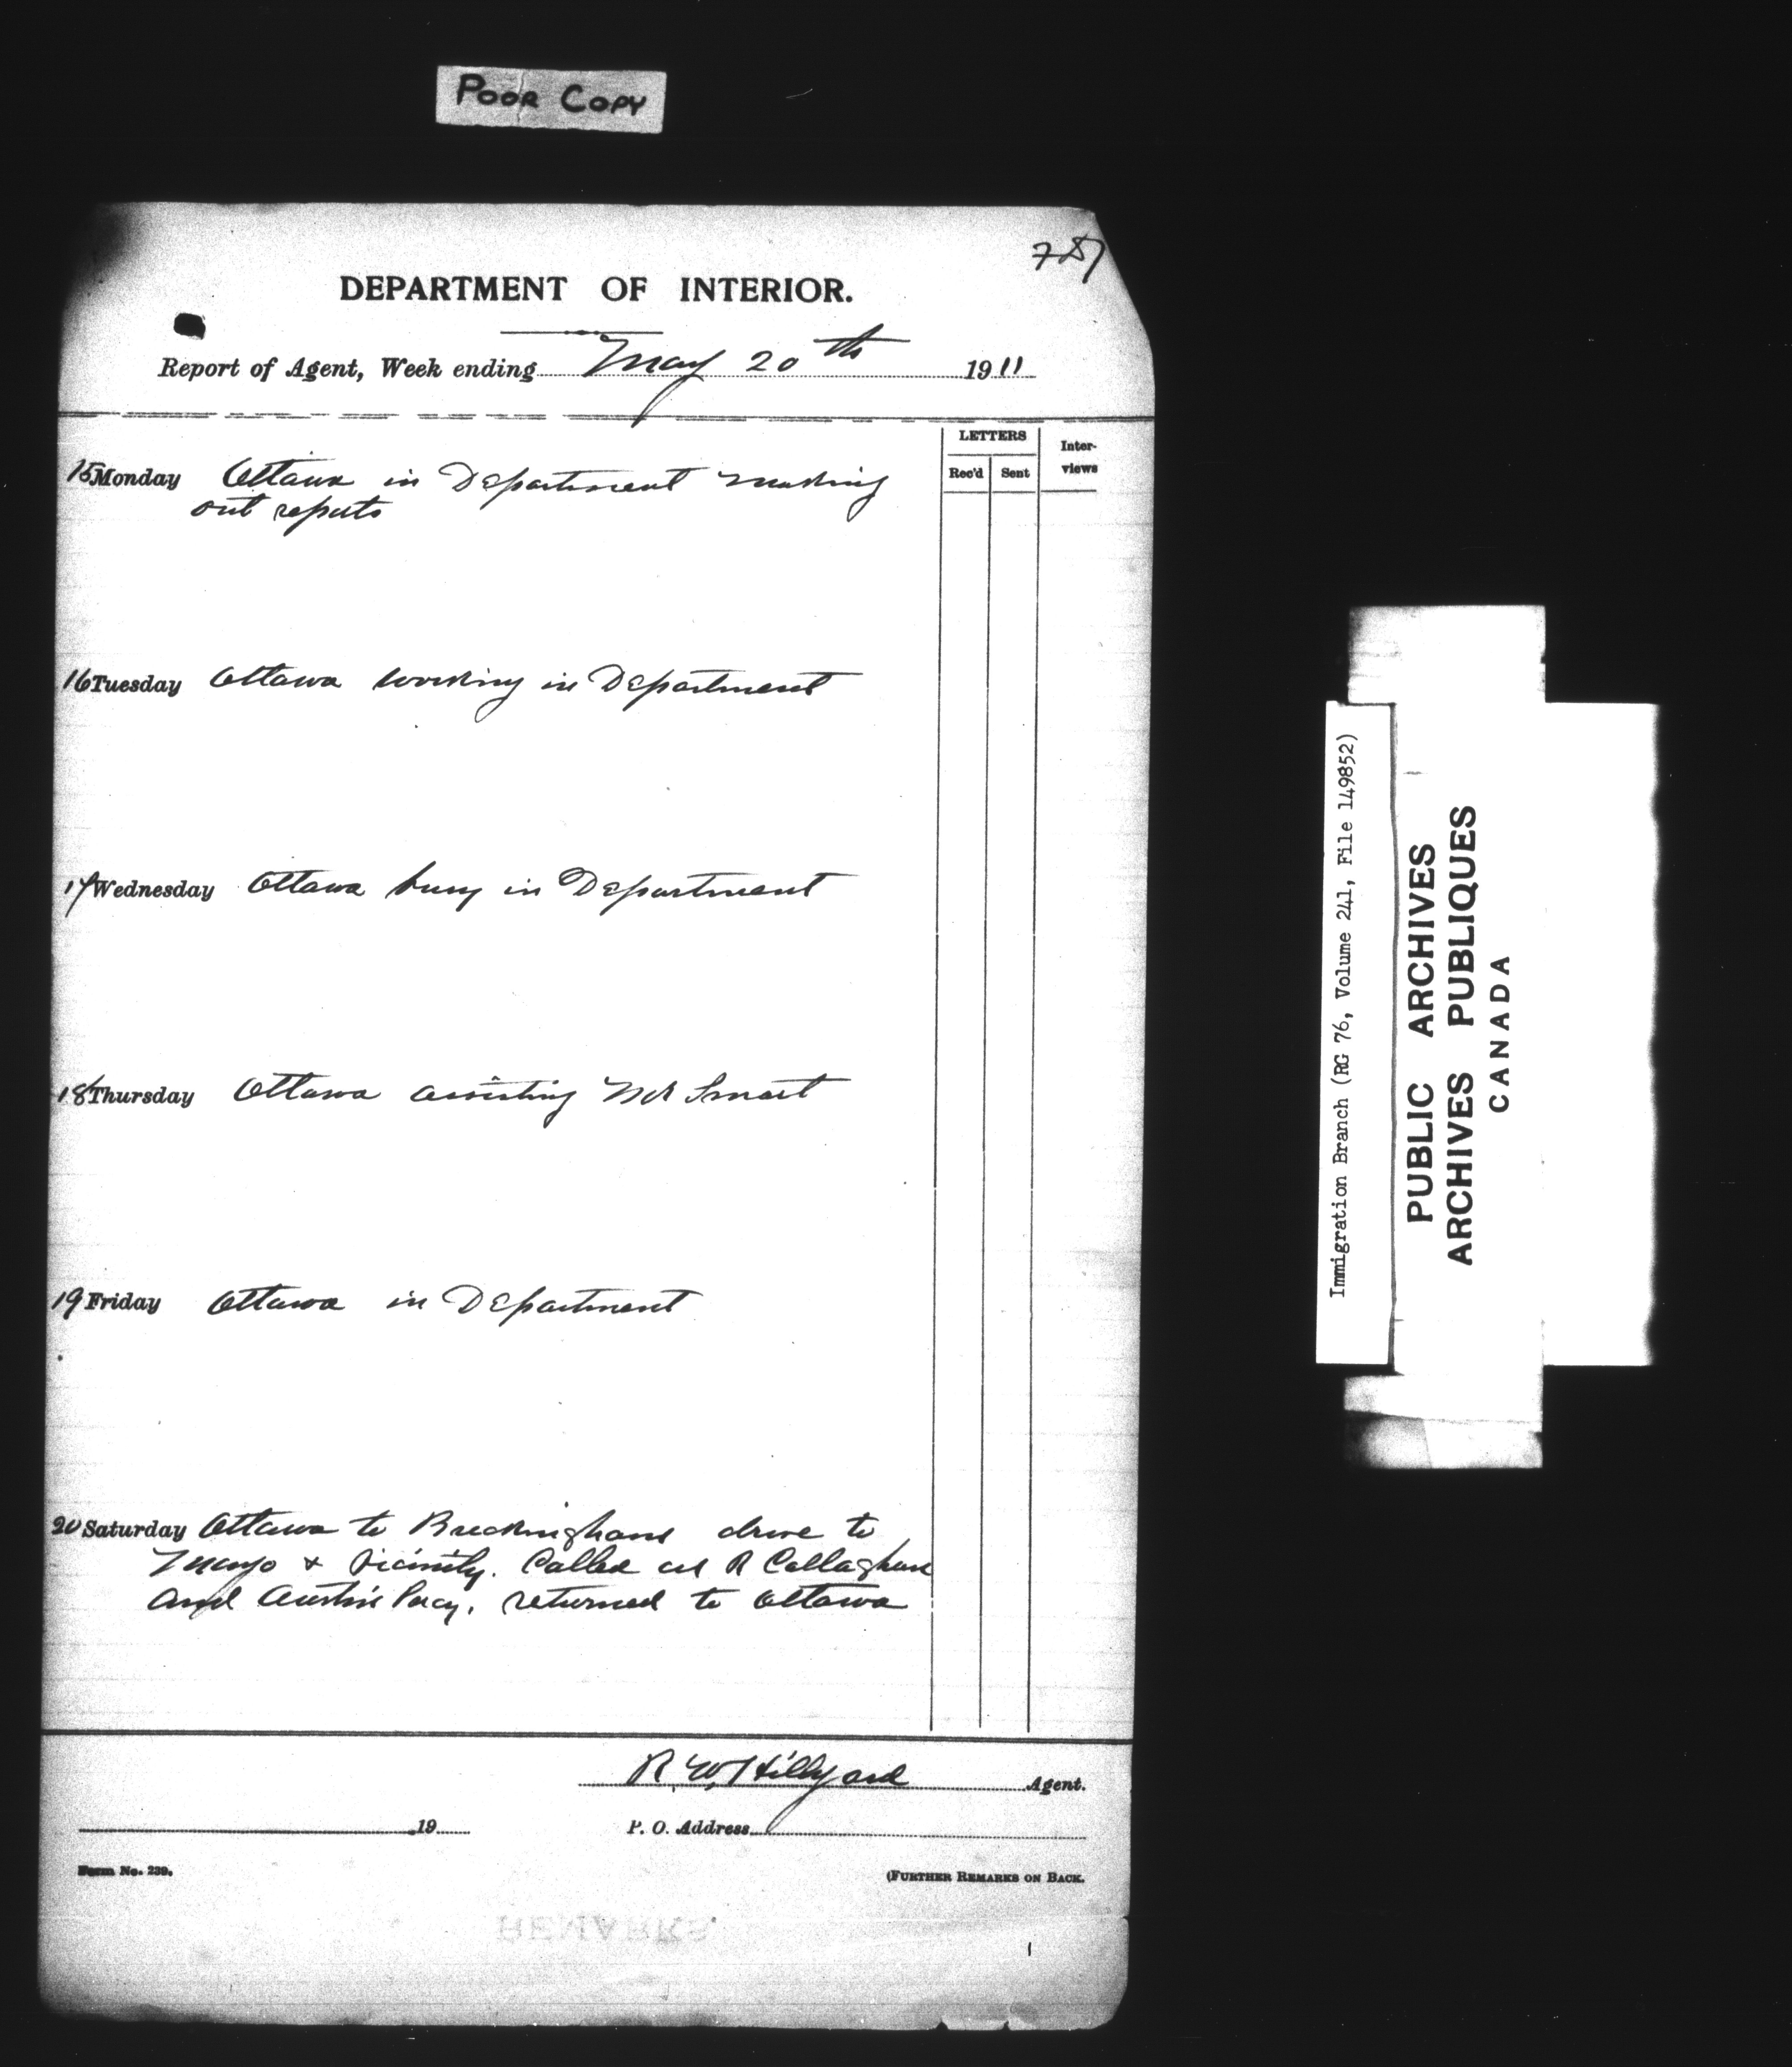 POOR COPY
787
DEPARTMENT OF INTERIOR.
Report of Agent, Week ending May 20th 1911
LETTERS
Rec'd Sent
Inter-
views
15 Monday Ottawa in Department making
out reports
16 Tuesday Ottawa working in Department
17 Wednesday Ottawa busy in Department
18 Thursday Ottawa assisting Mr Smart
19 Friday Ottawa in Department
20 Saturday Ottawa to Buckingham drive to
Mayo & Vicinity. Called on R Callaghan
and Austin . returned to Ottawa
R. W. Hillyard Agent.
19
P. O. Address
Form No. 239.
(FURTHER REMARKS ON BACK.
REMARKS.
Immigration Branch (RG 76, Volume 241, File 149852)
PUBLIC ARCHIVES
ARCHIVES PUBLIQUES
CANADA